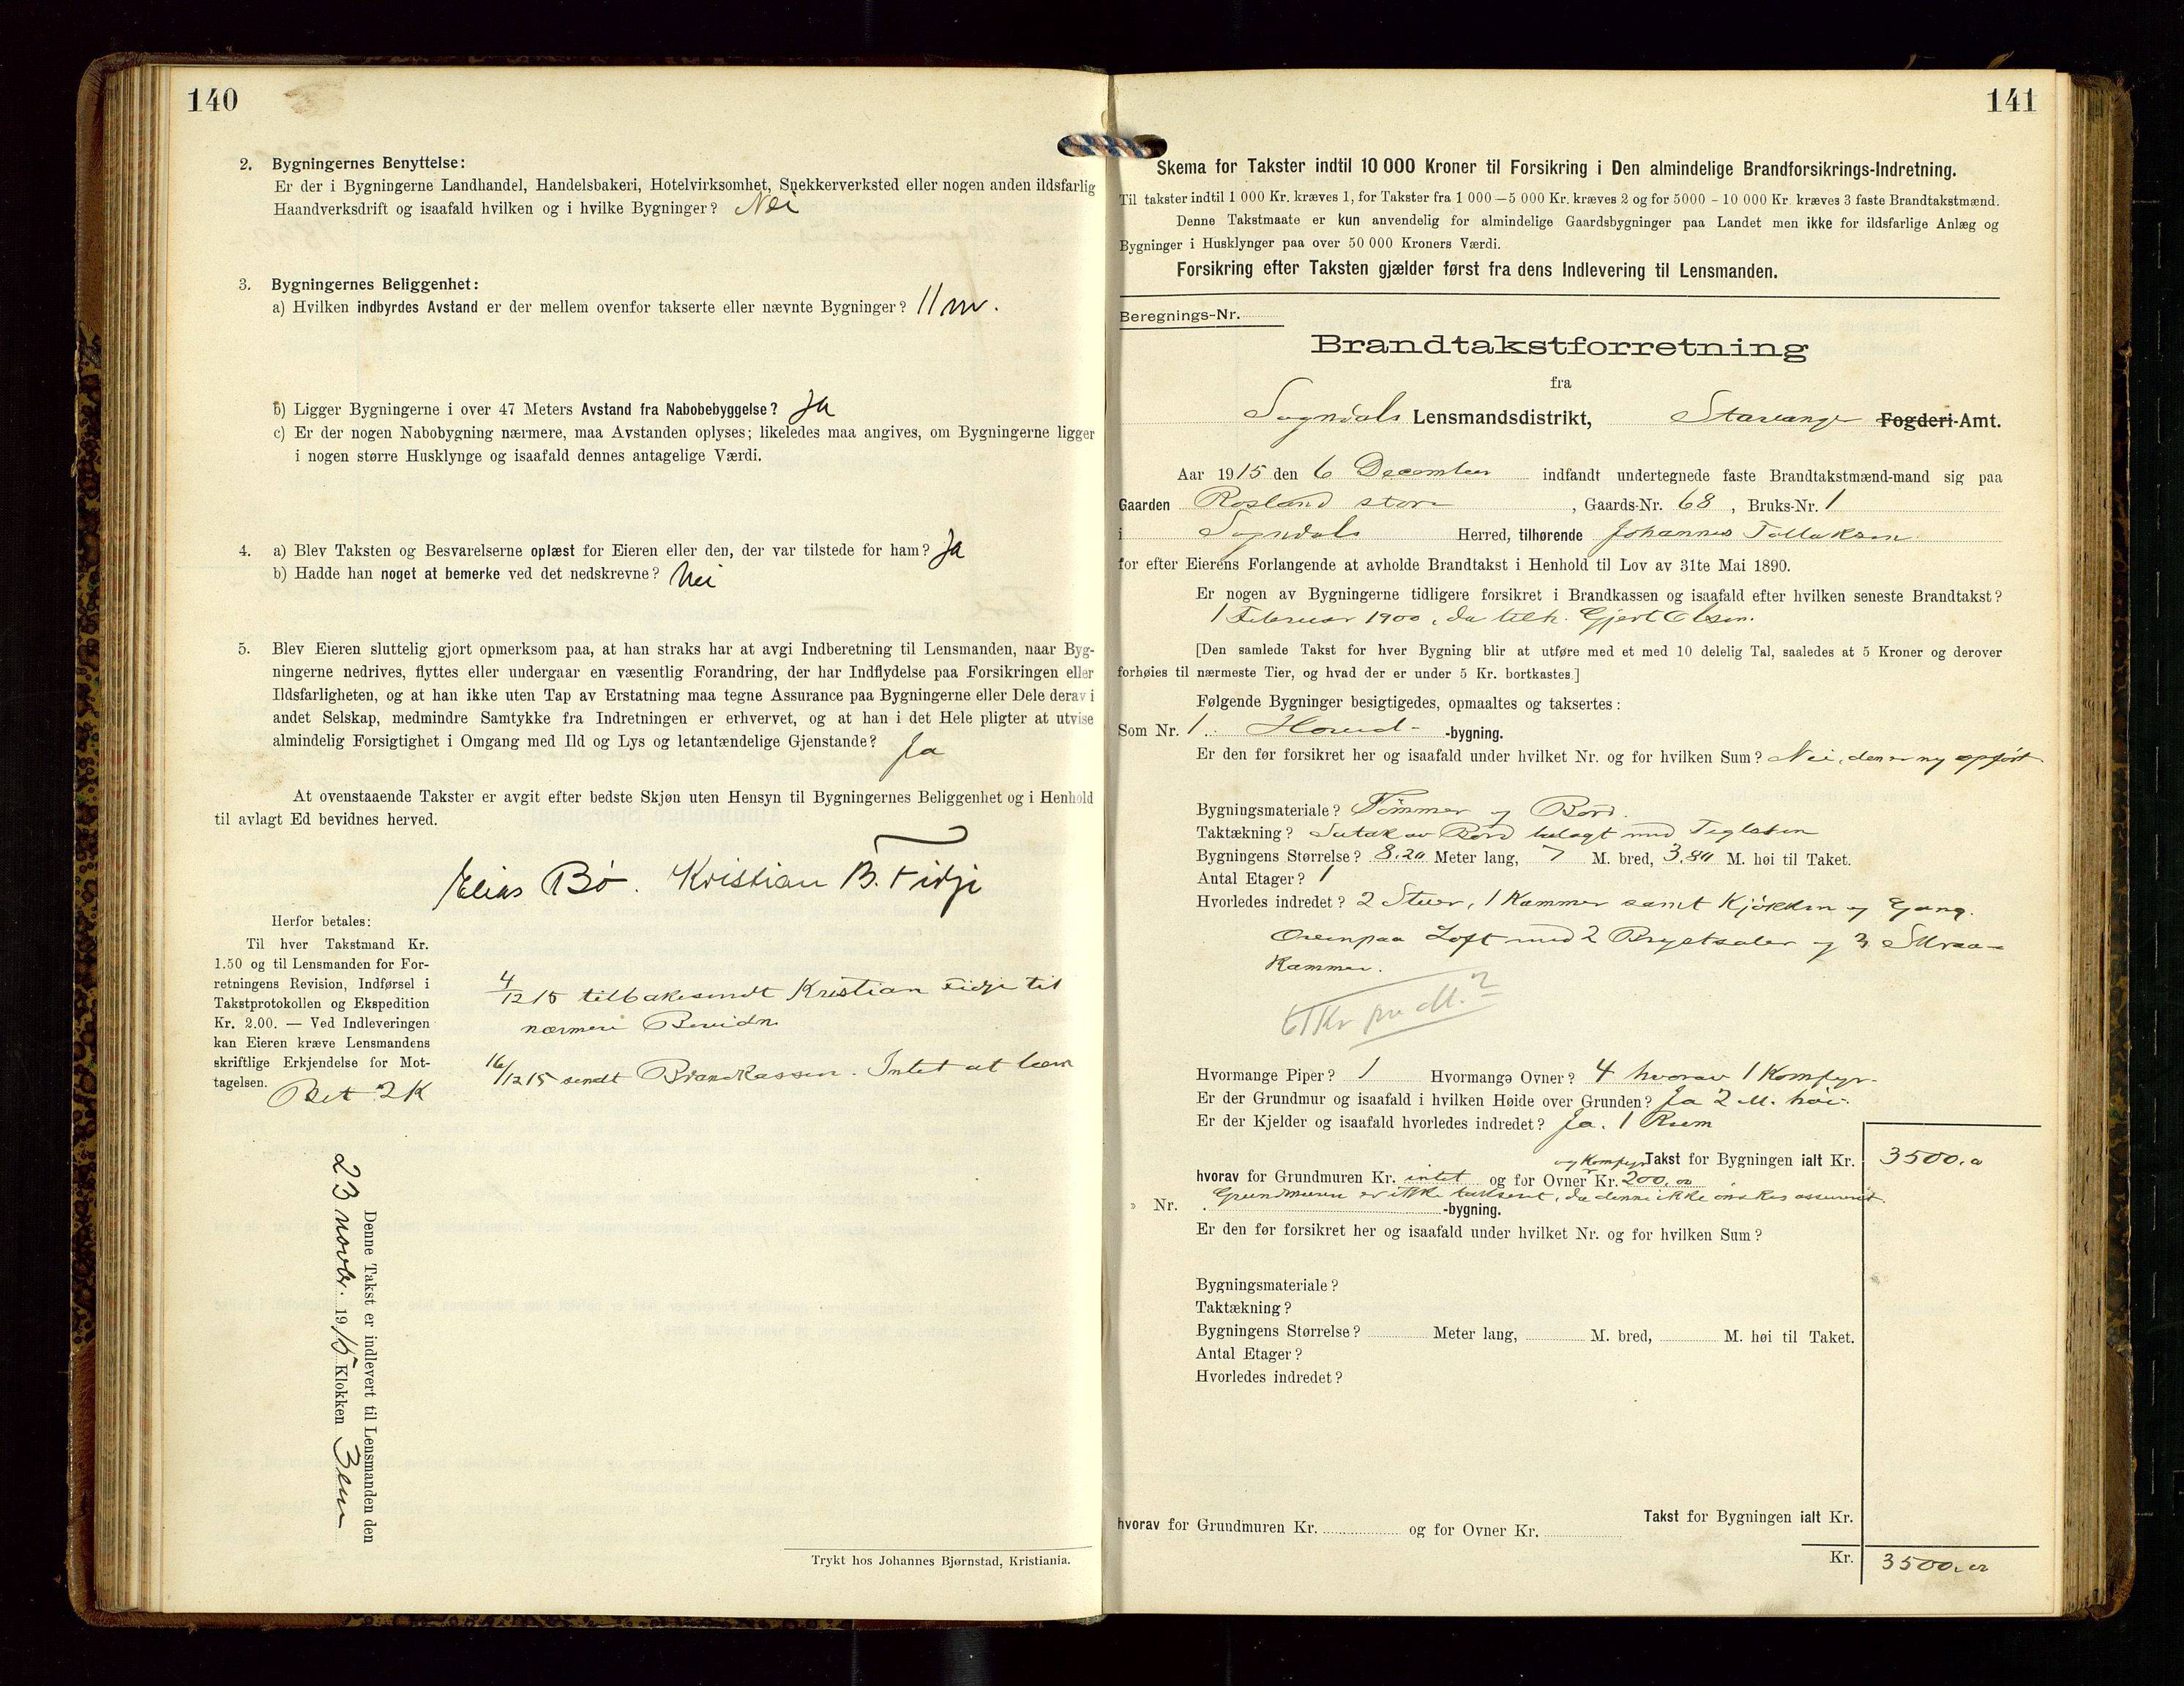 140
2. Bygningernes Benyttelse:
Er der i Bygningerne Landhandel, Handelsbakeri, Hotelvirksomhet, Snekkerverksted eller nogen anden ildsfarlig
Haandverksdrift og isaafald hvilken og i hvilke Bygninger? Nei
3. Bygningernes Beliggenhet:
a) Hvilken indbyrdes Avstand er der mellem ovenfor takserte eller nævnte Bygninger? 11 m.
b) Ligger Bygningerne i over 47 Meters Avstand fra Nabobebyggelse? Ja
c) Er der nogen Nabobygning nærmere, maa Avstanden oplyses; likeledes maa angives, om Bygningerne ligger
i nogen større Husklynge og isaafald dennes antagelige Værdi.
4. a) Blev Taksten og Besvarelserne oplæst for Eieren eller den, der var tilstede for ham? Ja
b) Hadde han noget at bemerke ved det nedskrevne? Nei
5. Blev Eieren sluttelig gjort opmerksom paa, at han straks har at avgi Indberetning til Lensmanden, naar Byg-
ningerne nedrives, flyttes eller undergaar en væsentlig Forandring, der har Indflydelse paa Forsikringen eller
Ildsfarligheten, og at han ikke uten Tap av Erstatning maa tegne Assurance paa Bygningerne eller Dele derav i
andet Selskap, medmindre Samtykke fra Indretningen er erhvervet, og at han i det Hele pligter at utvise
almindelig Forsigtighet i Omgang med Ild og Lys og letantændelige Gjenstande? Ja
At ovenstaaende Takster er avgit efter bedste Skjøn uten Hensyn til Bygningernes Beliggenhet og i Henhold
til avlagt Ed bevidnes herved.
Elias Bø. Kristian B. Fidje
Herfor betales:
Til hver Takstmand Kr.
1.50 og til Lensmanden for For-
retningens Revision, Indførsel i
Takstprotokollen og Ekspedition
Kr. 2.00. — Ved Indleveringen
kan Eieren kræve Lensmandens
skriftlige Erkjendelse for Mot-
tagelsen. Bet 2 K
4/12 15 tilbakesendt Kristian Fidje til
nærmere
16/12 15 sendt Brandkassen. Intet at
Denne Takst er indlevert til Lensmanden den
23 novbr. 1915 Klokken 3 em
Trykt hos Johannes Bjørnstad, Kristiania.
141
Skema for Takster indtil 10 000 Kroner til Forsikring i Den almindelige Brandforsikrings-Indretning.
Til takster indtil 1 000 Kr. kræves 1, for Takster fra 1 000—5 000 Kr. kræves 2 og for 5000 - 10 000 Kr. kræves 3 faste Brandtakstmænd.
Denne Takstmaate er kun anvendelig for almindelige Gaardsbygninger paa Landet men ikke for ildsfarlige Anlæg og
Bygninger i Husklynger paa over 50 000 Kroners Værdi.
Forsikring efter Taksten gjælder først fra dens Indlevering til Lensmanden.
Beregnings-Nr.
Brandtakstforretning
fra
Sogndals Lensmandsdistrikt, Stavanger Fogderi-Amt.
Aar 1915 den 6 December indfandt undertegnede faste Brandtakstmænd-mand sig paa
Gaarden Rosland store, Gaards-Nr. 68, Bruks-Nr. 1
i Sogndals Herred, tilhørende Johannes Tollaksen
for efter Eierens Forlangende at avholde Brandtakst i Henhold til Lov av 31te Mai 1890.
Er nogen av Bygningerne tidligere forsikret i Brandkassen og isaafald efter hvilken seneste Brandtakst?
1 Februar 1900, da tilh. Gjert Olsen.
[Den samlede Takst for hver Bygning blir at utføre med et med 10 delelig Tal, saaledes at 5 Kroner og derover
forhøies til nærmeste Tier, og hvad der er under 5 Kr. bortkastes.]
Følgende Bygninger besigtigedes, opmaaltes og taksertes:
Som Nr. 1. Hoved- -bygning.
Er den før forsikret her og isaafald under hvilket Nr. og for hvilken Sum? Nei, den er ny opført
Bygningsmateriale? Tømmer og Bord.
Taktækning? Sutak av Bord belagt med Teglsten
Bygningens Størrelse? 8,20 Meter lang, 7 M. bred, 3,80 M. høi til Taket.
Antal Etager? 1
Hvorledes indredet? 2 Stuer, 1 Kammer samt Kjøkken og Gang.
Ovenpaa Loft med 2 Brystsaler og 3 Skraa-
Kammer.
61 Kr pr. M.2
Hvormange Piper? 1 Hvormange Ovner? 4 hvorav 1 Komfyr
Er der Grundmur og isaafald i hvilken Høide over Grunden? Ja 2 M. høi.
Er der Kjelder og isaafald hvorledes indredet? Ja. 1 Rum
Takst for Bygningen ialt Kr. 3500.00
og Komfyr
hvorav for Grundmuren Kr. intet og for Ovner Kr. 200.00
Grundmuren er ikke taksert, da denne ikke ønskes assurert.
» Nr. -bygning.
Er den før forsikret her og isaafald under hvilket Nr. og for hvilken Sum?
Bygningsmateriale?
Taktækning?
Bygningens Størrelse? Meter lang, M. bred, M. høi til Taket.
Antal Etager?
Hvorledes indredet?
Takst for Bygningen ialt Kr.
hvorav for Grundmuren Kr. og for Ovner Kr.
Kr. 3500.00